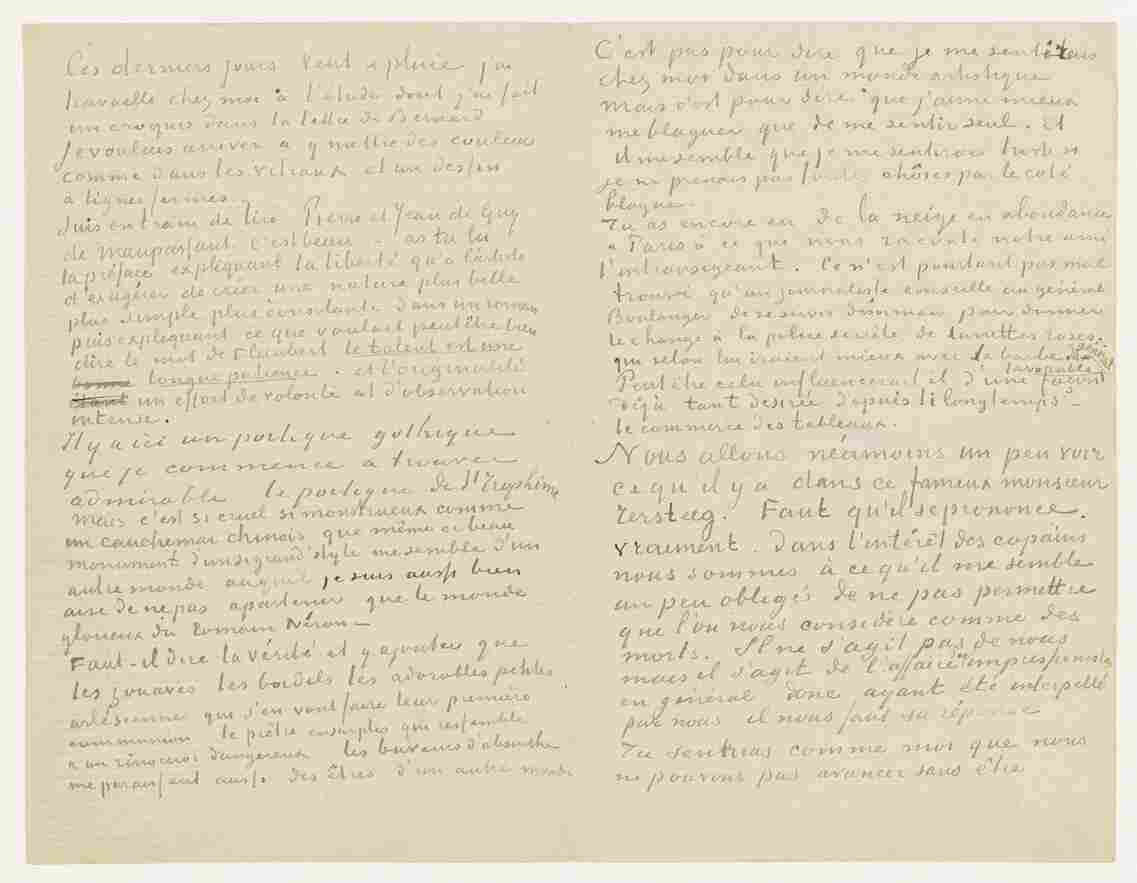 Ces derniers jours vent & pluie j'ai
travaille chez moi à l'etude dont j'ai fait
un croquis dans la lettre de Bernard
Je voulais arriver à y mettre des couleurs
comme dans les vitraux et un dessin
à lignes fermes.
Suis en train de lire Pierre et Jean de Guy
de Maupassant c'est beau – as tu lu
la préface expliquant la liberté qu'a l'artiste
d'exagérer de créer une nature plus belle
plus simple plus consolante dans un roman
puis expliquant ce que voulait peutêtre bien
dire le mot de Flaubert le talent est une
longue patience – et l'originalité
un effort de volonté et d'observation
intense.
Il y a ici un portique gothique
que je commence à trouver
admirable le portique de St Trophime
mais c'est si cruel si monstrueux comme
un cauchemar chinois que même ce beau
monument d'un si grand style me semble d'un
autre monde auquel je suis aussi bien
aise de ne pas apartenir que le monde
glorieux du romain Néron –
Faut-il dire la vérité et y ajouter que
les zouaves les bordels les adorables petites
arlésienne qui s'en vont faire leur première
communion le prêtre en surplis qui ressemble
à un rinoceros dangereux les buveurs d'absinthe
me paraissent aussi des êtres d'un autre monde
C'est pas pour dire que je me sentirais
chez moi dans un monde artistique
mais c'est pour dire que j'aime mieux
me blaguer que de me sentir seul. et
il me semble que je me sentirais triste si
je ne prenais pas toutes choses par le coté
blague.
Tu as encore eu de la neige en abondance
à Paris à ce que nous raconte notre ami
l'intransigeant. Ce n'est pourtant pas mal
trouvé qu'un journaliste conseille au général
Boulanger de se servir dorenavant pour donner
le change à la police secrète de lunettes roses
qui selon lui iraient mieux avec la barbe du général
Peut être cela influencerait il d'une façon favorable
déjà tant desirée depuis si longtemps –
le commerce des tableaux.
Nous allons néamoins un peu voir
ce qu'il y a dans ce fameux monsieur
Tersteeg. Faut qu'il se prononce.
vraiment. Dans l'intérêt des copains
nous sommes à ce qu'il me semble
un peu obligés de ne pas permettre
que l'on nous considère comme des
morts. Il ne s'agit pas de nous
mais il s'agit de l'affaire impressioniste
en général donc ayant été interpellé
par nous il nous faut sa réponse
Tu sentiras comme moi que nous
ne pouvons pas avancer sans être